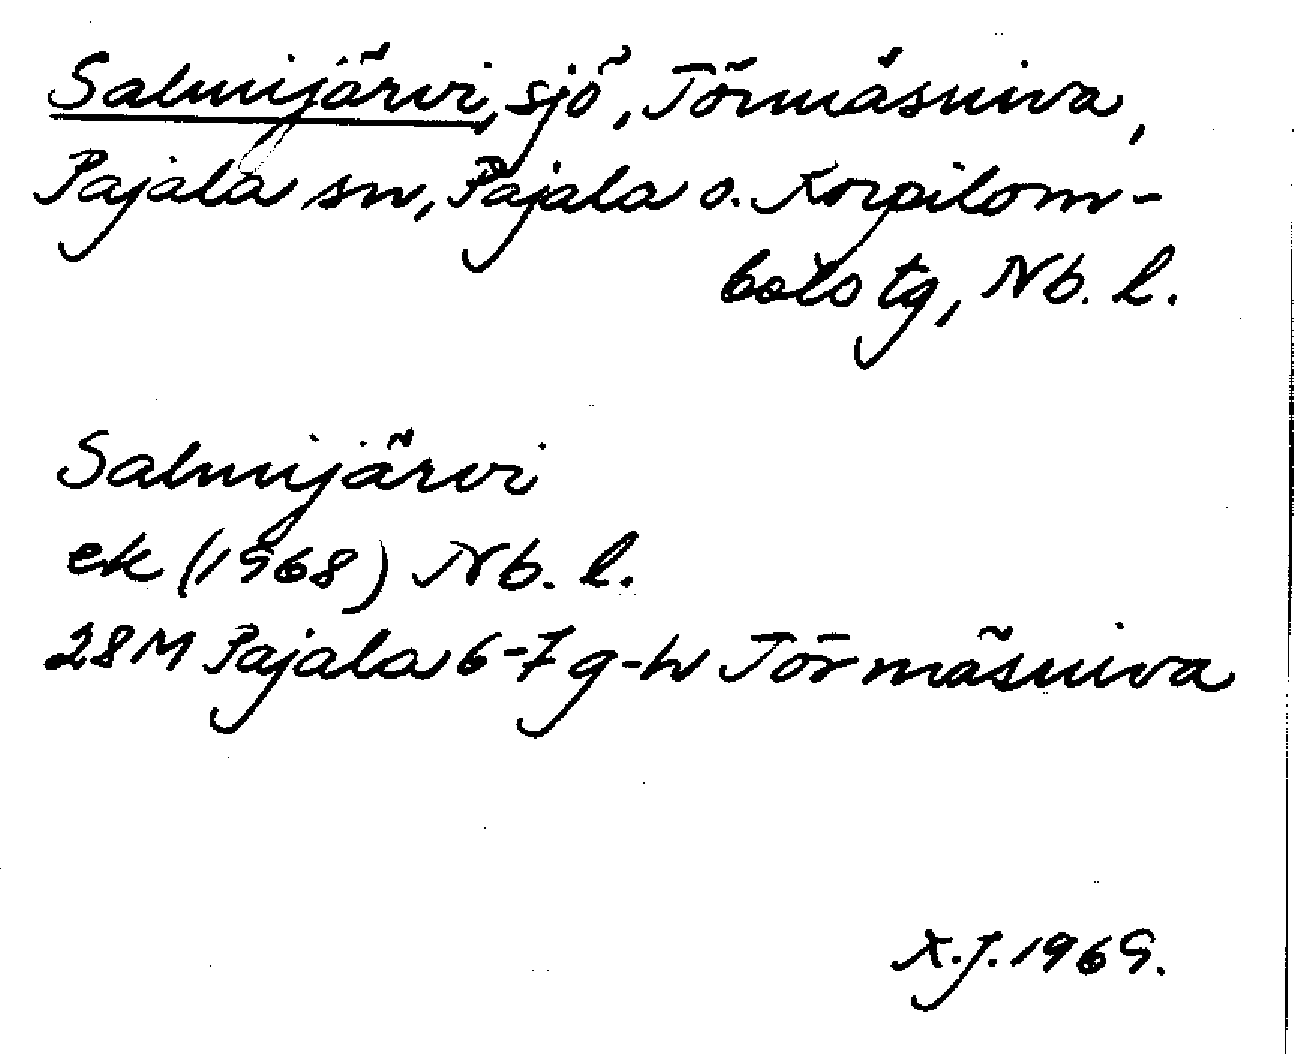 Salmijärvi, sjö, Törmäsniva,
Pajala sn, Pajala o. Korpilom-
bolo tg, Nb. l.
Salmijärvi
ek (1968) Nb. l.
28M Pajala 6-7 g-h Törmäsniva
K.J. 1969.